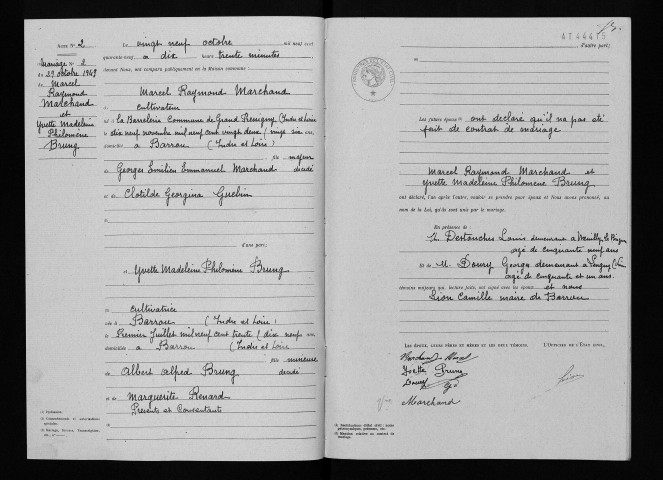 Acte N° 2
Mariage N° 2
du 29 octobre 1949
de Marcel
Raymond
Marchand
et
Yvette Madeleine
Philomène
Brung
Le vingt neuf octobre mil neuf cent
quarante neuf à dix heures trente minutes
devant Nous, ont comparu publiquement en la Maison commune :
Marcel Raymond Marchand
cultivateur
né à la Barrelerie Commune de Grand Pressigny (Indre et Loire)
le dix neuf novembre mil neuf cent vingt deux (vingt six ans,
domicilié à Barrou (Indre et Loire)
fils majeur
de Georges Emilien Emmanuel Marchand décédé
et de Clotilde Georgina Guebin
d'une part;
et Yvette Madeleine Philomène Brung
cultivatrice
née à Barrou (Indre et Loire)
le Premier Juillet mil neuf cent trente (dix neuf ans,
domiciliée à Barrou (Indre et Loire)
fille mineure
de Albert Alfred Brung décédé
et de Marguerite Renard
Présents et Consentants
A 744415
d'autre part;
Les futurs époux ont déclaré qu'il n'a pas été
fait de contrat de mariage
Marcel Raymond Marchand et
Yvette Madeleine Philomène Brung
ont déclaré, l'un après l'autre, vouloir se prendre pour époux et Nous avons prononcé, au
nom de la Loi, qu'ils sont unis par le mariage.
En présence de
Destouches Louis demeurant à
agé de cinquante neuf ans
et de M. Doury Georges demeurant à
agé de cinquante et un ans.
témoins majeurs qui, lecture faite, ont signé avec les époux et nous
Lion Camille maire de Barrou
Les époux, leurs pères et mères et les deux témoins. L'Officier de l'État civil,
Marchand Marcel
Yvette Brung
Doury
Marchand